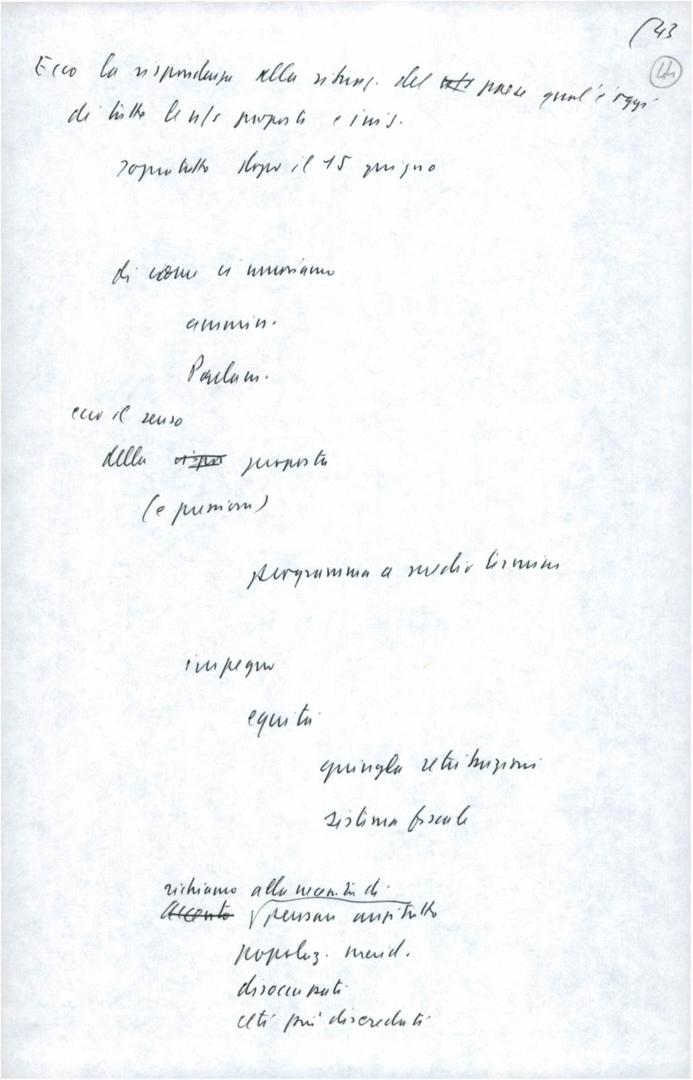 43
44
Ecco la rispondenza alla situaz. del paese qual'è oggi
di tutte le ns/ proposte e iniz.
sopratutto dopo il 15 giugno
di come ci muoviamo
ammin.
Parlam.
ecco il senso
della proposta
(e pressioni)
programma a medio termine
impegno
equità
giungla retribuzioni
sistema fiscale
richiamo alla necessità di
Accento pensare anzitutto
popolaz. merid.
disoccupati
ceti più diseredati